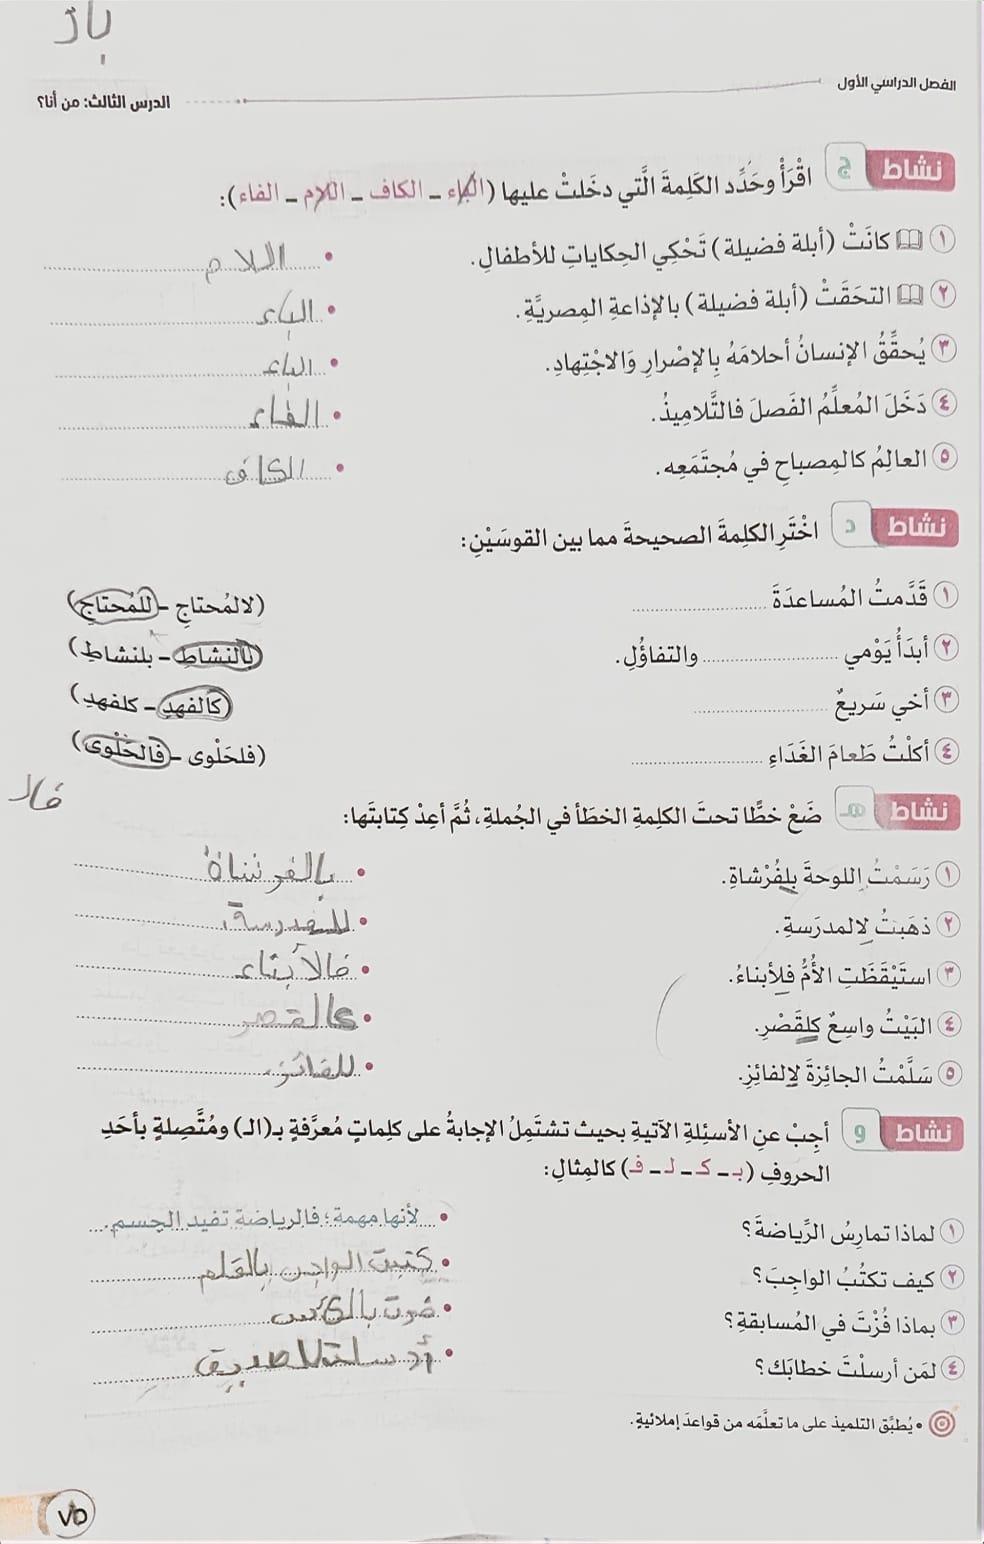 بال
الفصل الدراسي الأول
الدرس الثالث: من أنا؟
نشاط ج اقْرَأْ وحَدِّد الكَلِمةَ الَّتي دخَلتْ عليها (الباء - الكاف - اللام - الفاء):
١ كانَتْ (أبلة فضيلة) تَحْكِي الحِكاياتِ للأطفالِ. • اللام
٢ التحَقَتْ (أبلة فضيلة) بالإذاعةِ المِصريَّةِ. • الباء
٣ يُحقِّقُ الإنسانُ أحلامَهُ بِالإصْرارِ وَالاجْتِهادِ. • الباء
٤ دَخَلَ المُعلِّمُ الفَصلَ فالتَّلاميذُ. • الفاء
٥ العالِمُ كالمِصباحِ في مُجتَمَعِه. • الكاف
نشاط د اخْتَرِ الكلِمةَ الصحيحةَ مما بين القوسَيْنِ:
١ قَدَّمتُ المُساعدَةَ (لالمُحتاجِ - للمُحتاجِ)
٢ أبدَأُ يَوْمي والتفاؤُلِ. (بالنشاطِ - بلنشاطِ)
٣ أخي سَريعٌ (كالفهدِ - كلفهدِ)
٤ أكلْتُ طَعامَ الغَدَاءِ (فلحَلْوى - فالحَلْوى)
فال
نشاط هـ ضَعْ خطًّا تحتَ الكلِمةِ الخطَأ في الجُملةِ، ثُمَّ أعِدْ كِتابتَها:
١ رَسَمْتُ اللوحةَ بِلفُرْشاةِ. • بالفرشاة
٢ ذهَبتُ لالمدرَسةِ. • للمدرسة
٣ استَيْقَظَتِ الأُمُّ فلِأبناءُ. • فالأبناء
٤ البَيْتُ واسِعٌ كلقَصْرِ. • كالقصر
٥ سَلَّمْتُ الجائِزةَ لالفائِزِ. • للفائز
نشاط و أجِبْ عنِ الأسئِلةِ الآتيةِ بحيث تشتَمِلُ الإجابةُ على كلماتٍ مُعرَّفةٍ بـ(الـ) ومُتَّصِلةٍ بأحَدِ
الحروفِ (بـ - كـ - لـ - فـ) كالمِثالِ:
١ لماذا تمارِسُ الرِّياضةَ؟ • لأنها مهمة؛ فالرياضة تفيد الجسم.
٢ كيف تكتُبُ الواجِبَ؟ • كتبت الواجب بالقلم
٣ بماذا فُزْتَ في المُسابقةِ؟ • فوت بالكأس
٤ لمَن أرسلْتَ خطابَك؟ • أرسلت للصديق
• يُطبِّق التلميذ على ما تعلَّمَه من قواعدَ إملائيةٍ.
٧٥